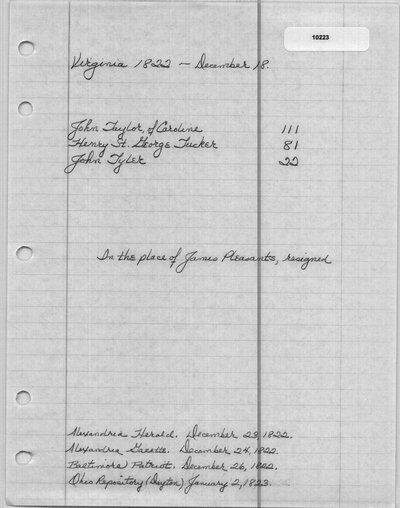 10223
Virginia 1822 — December 18.
John Taylor, of Caroline 111
Henry St. George Tucker 81
John Tyler 22
In the place of James Pleasants, resigned
Alexandria Herald. December 23, 1822.
Alexandria Gazette. December 24, 1822.
Baltimore Patriot. December 26, 1822.
Ohio Repository (Dayton) January 2, 1823.